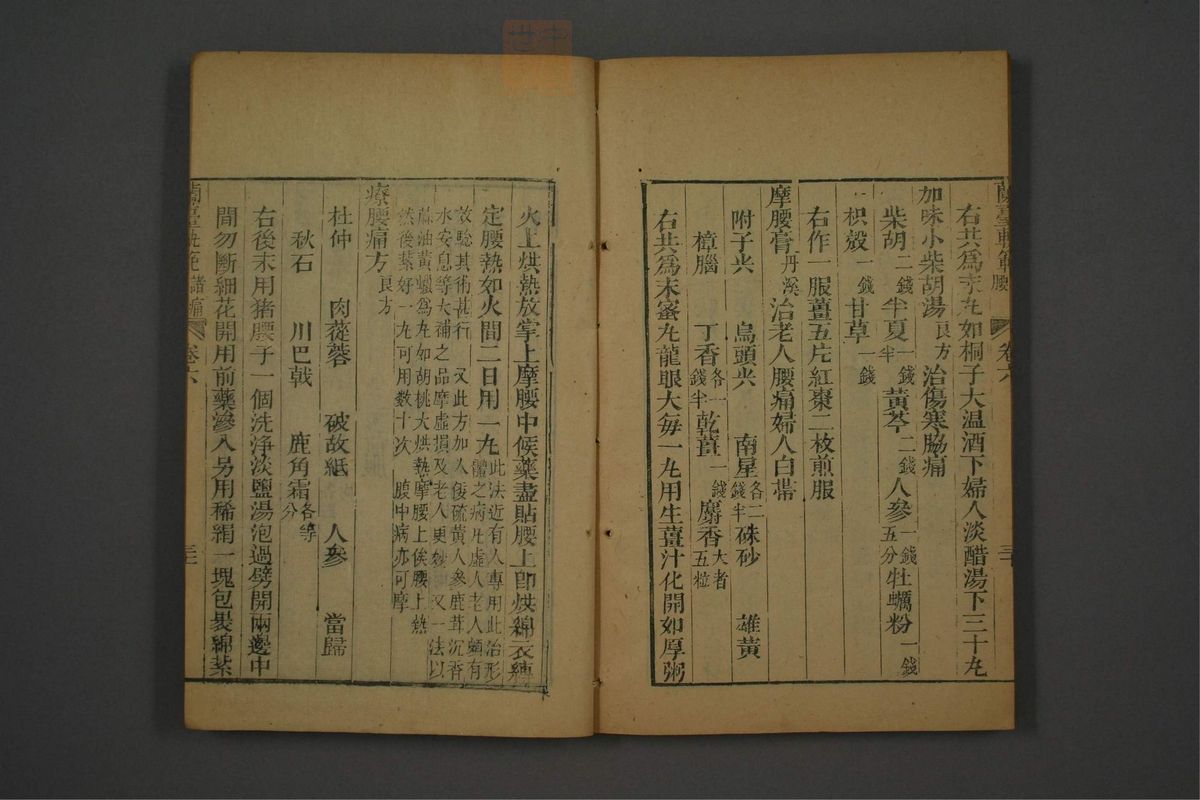 蘭臺軌範 腰 卷六
右共爲末丸如桐子大温酒下婦人淡醋湯下三十丸
加味小柴胡湯良方治傷寒脇痛
柴胡二錢 半夏一錢半 黄芩二錢 人參一錢五分 牡蠣粉一錢
枳殻一錢 甘草一錢
右作一服薑五片紅棗二枚煎服
摩腰膏丹溪治老人腰痛婦人白帯
附子尖 烏頭尖 南星各二錢半 硃砂 雄黄
樟腦 丁香各一錢半 乾薑一錢 麝香大者五粒
右共爲末蜜丸龍眼大每一丸用生薑汁化開如厚粥
火上烘熱放掌上摩腰中候藥盡貼腰上卽烘綿衣纏
定腰熱如火間二日用一丸此法近有人專用此治形體之病凡虚人老人頗有
效驗其術甚行 又此方加入倭硫黄人參鹿茸沉香
水安息等大補之品摩虚損及老人更妙 又一法以
蔴油黄蠟爲丸如胡桃大烘熱摩腰上俟腰上熱
然後紮好一丸可用数十次 腹中病亦可摩
療腰痛方良方
杜仲 肉蓯蓉 破故紙 人參 當歸
秋石 川巴戟 鹿角霜各等分
右後末用猪腰子一個洗浄淡鹽湯泡過劈開兩邊中
間勿斷細花開用前藥滲入另用稀絹一塊包裹綿紮
蘭臺軌範 諸痛 卷六